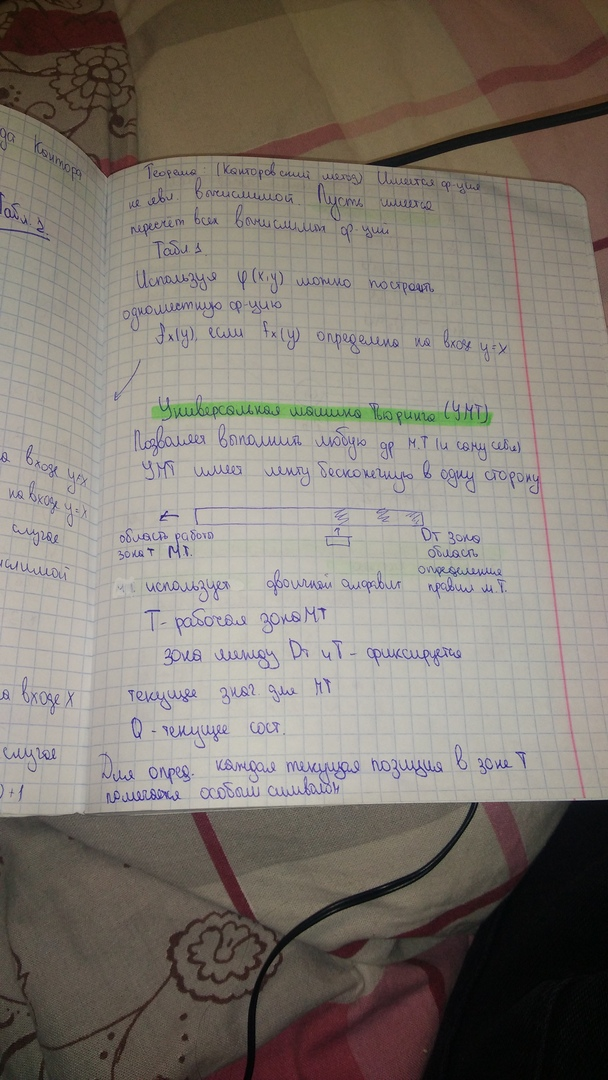 да Кантора
Табл. 2.
а входе y=x
на входе y=x
случае
числимой
а входе x
случае
)+1
Теорема (Канторовский метод) Имеется ф-ция
не явл. вычислимой. Пусть имеется
пересчёт всех вычислим ф-ций
Табл 1.
Используя φ(x,y) можно построить
одноместную ф-цию
fx(y), если fx(y) определена на входе y=x
Универсальная машина Тьюринга (УМТ)
Позволяет выполнить любую др М.Т (и саму себя)
УМТ имеет ленту бесконечную в одну сторону
область работы
зона T МТ.
Dт зона
область
определения
правил М.Т.
использует двоичный алфавит
T - рабочая зона МТ
зона между Dт и T - фиксируется
текущее знач для МТ
Q - текущее сост.
Для опред. каждая текущая позиция в зоне T
помечается особым символом